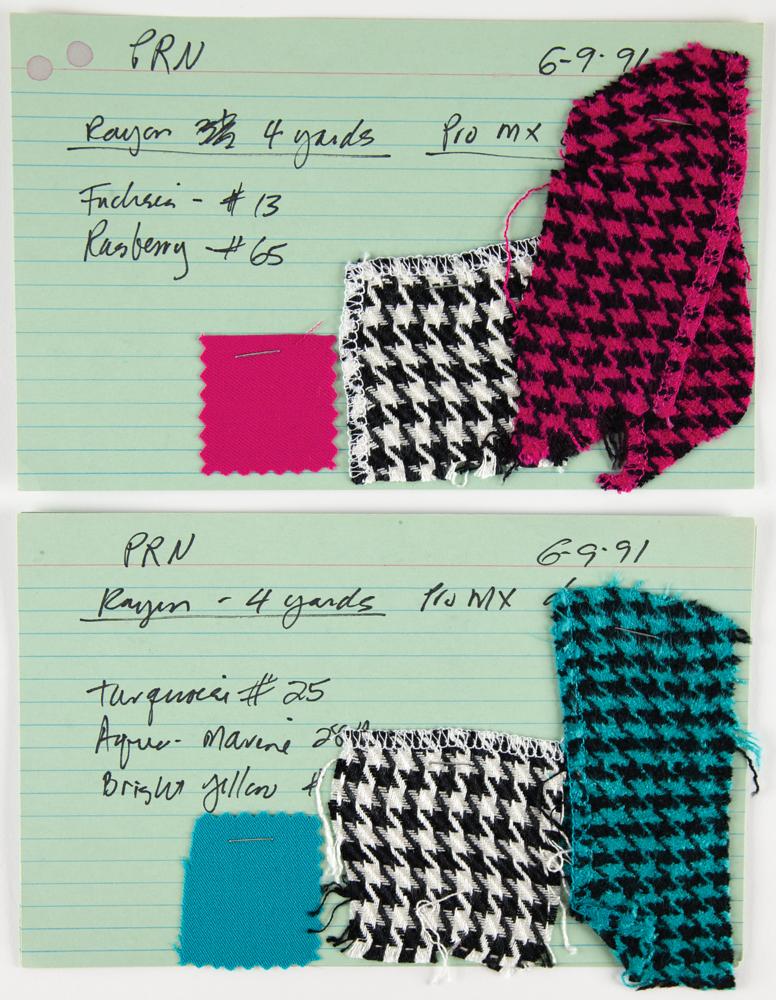 PRN 6-9-91
Rayon 4 yards Pro MX
Fuchsia - #13
Rasberry - #65
PRN 6-9-91
Rayon - 4 yards Pro MX
turquoise # 25
Aqua-marine
Bright yellow #